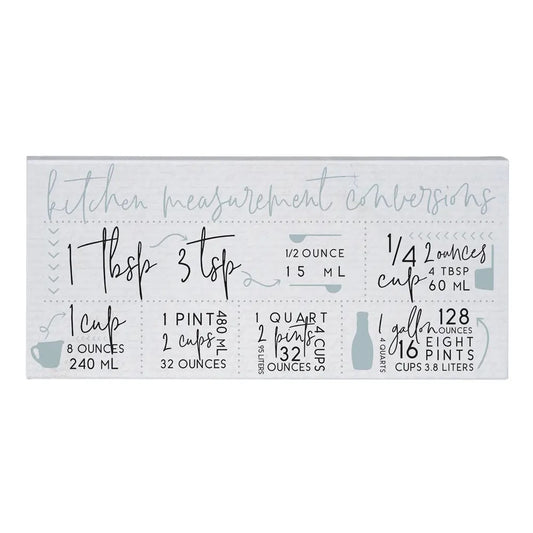 kitchen measurement conversions
1 tbsp 3 tsp
1/2 OUNCE
15 ML
1/4 cup
2 ounces
4 TBSP
60 ML
1 cup
8 OUNCES
240 ML
1 PINT
2 cups
32 OUNCES
480 ML
1 QUART
2 pints
32
OUNCES
4 CUPS
.95 LITERS
1 gallon
4 QUARTS
16
CUPS
128
OUNCES
EIGHT
PINTS
3.8 LITERS